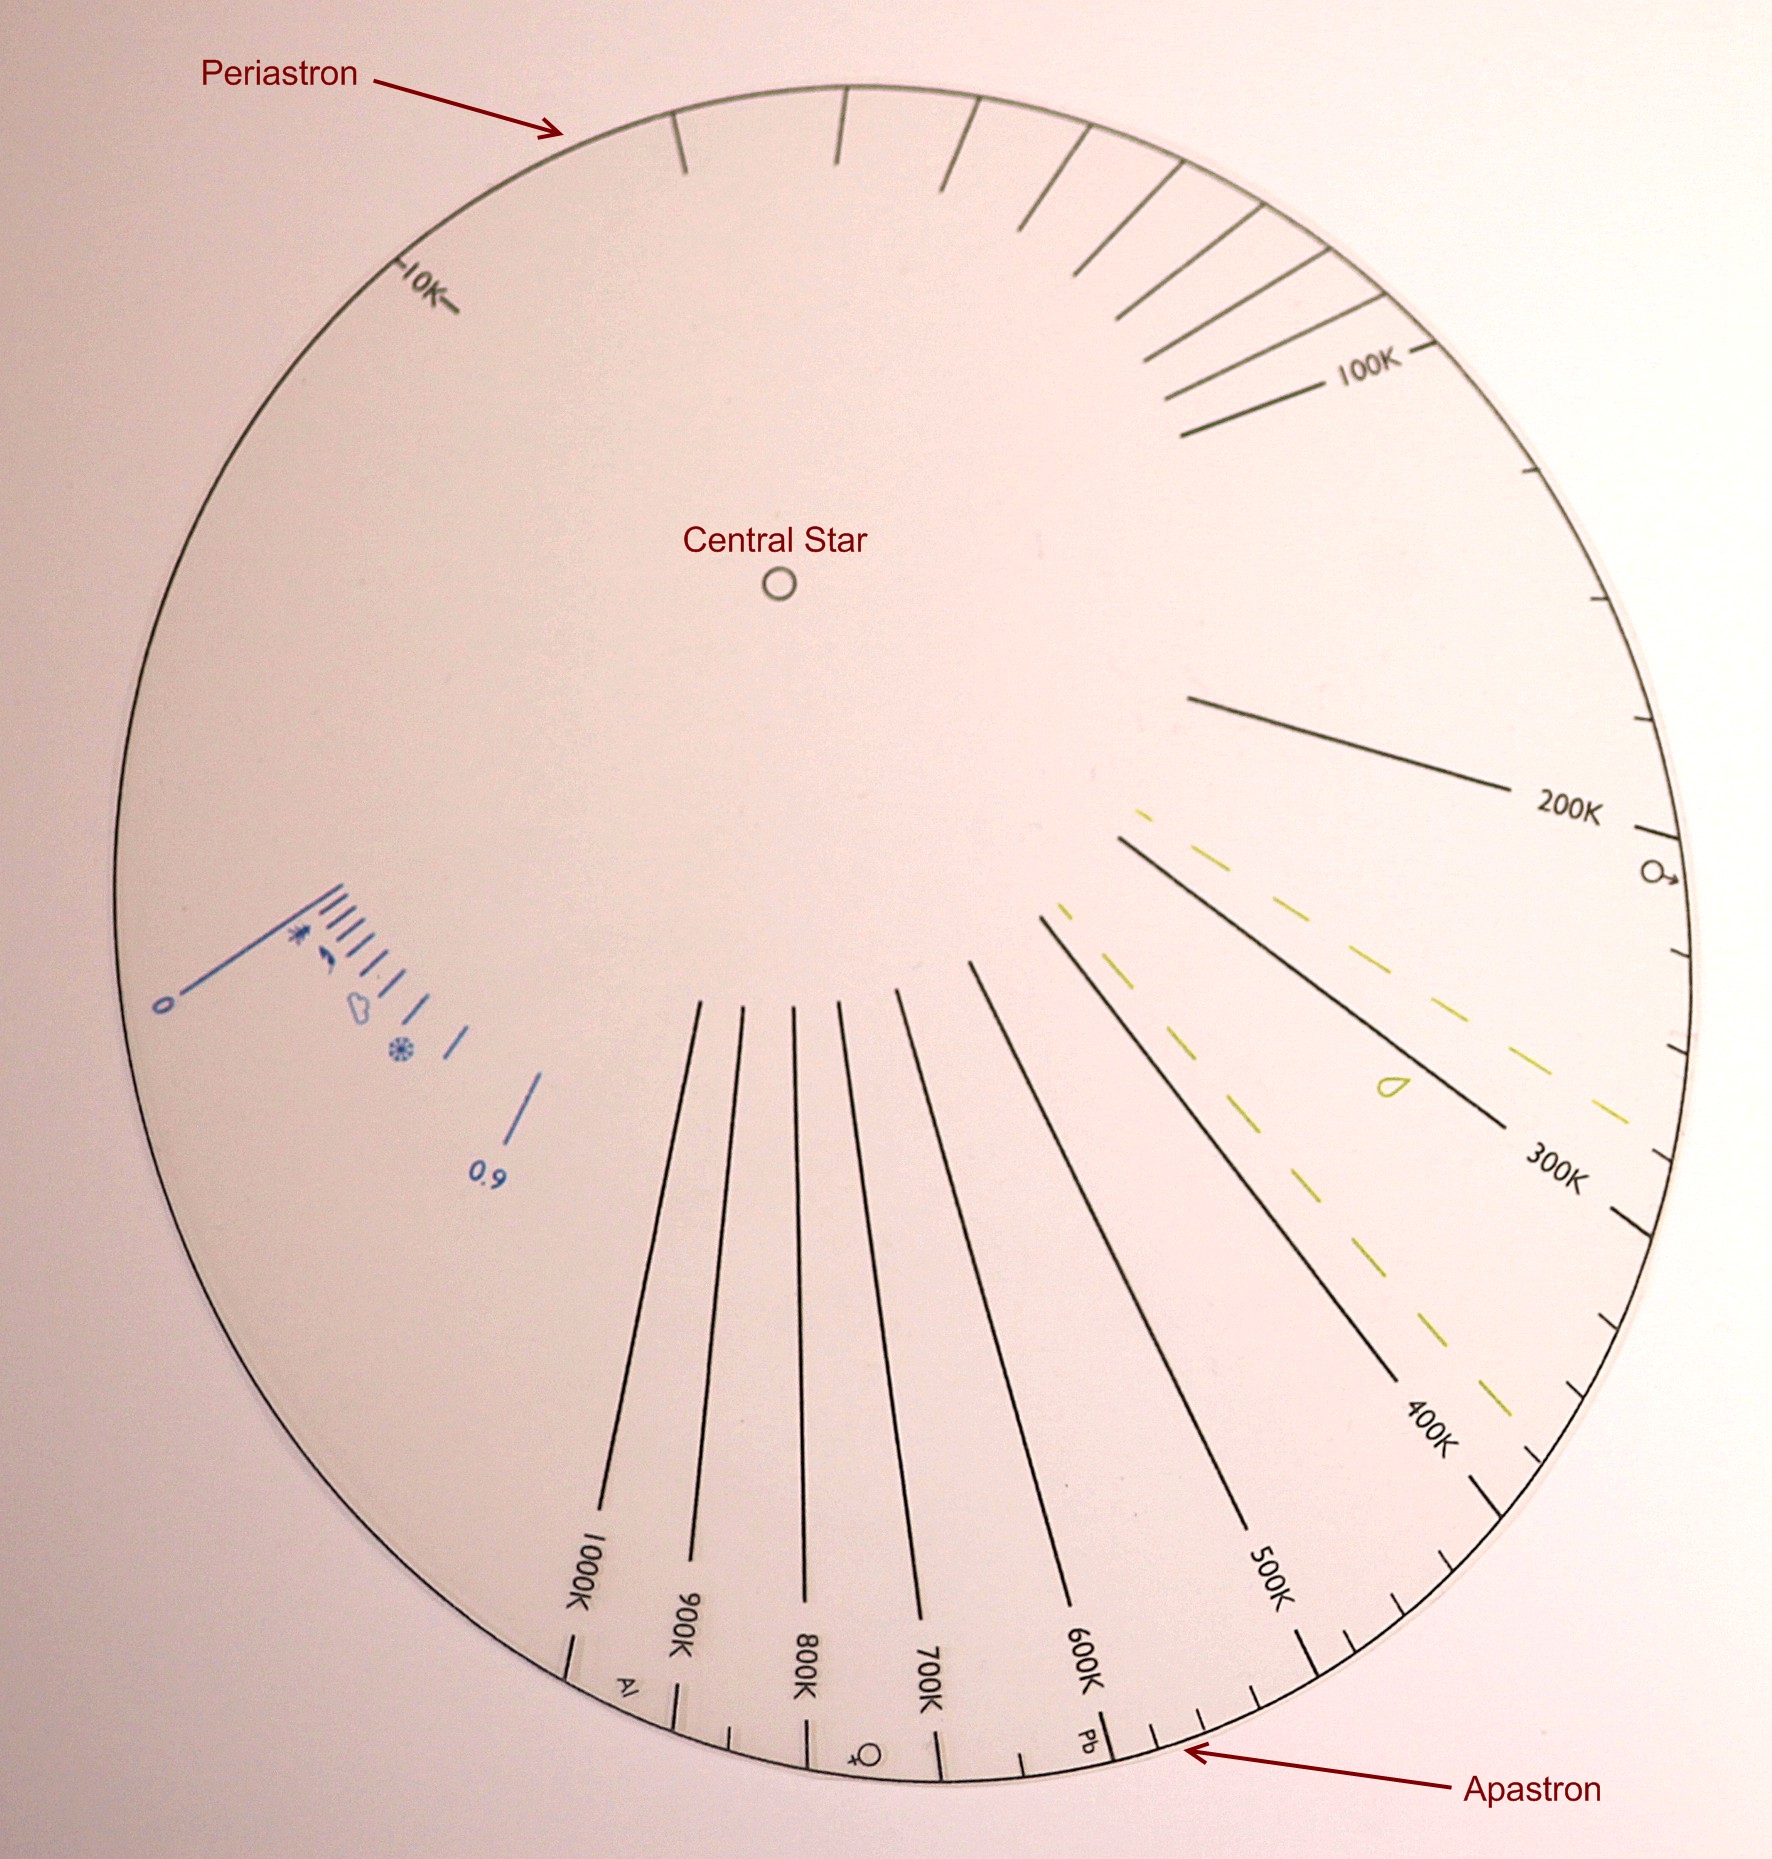 Periastron
10K
Central Star
100K
200K
♂
300K
400K
500K
600K
Pb
700K
♀
800K
900K
Al
1000K
0
0.9
Apastron